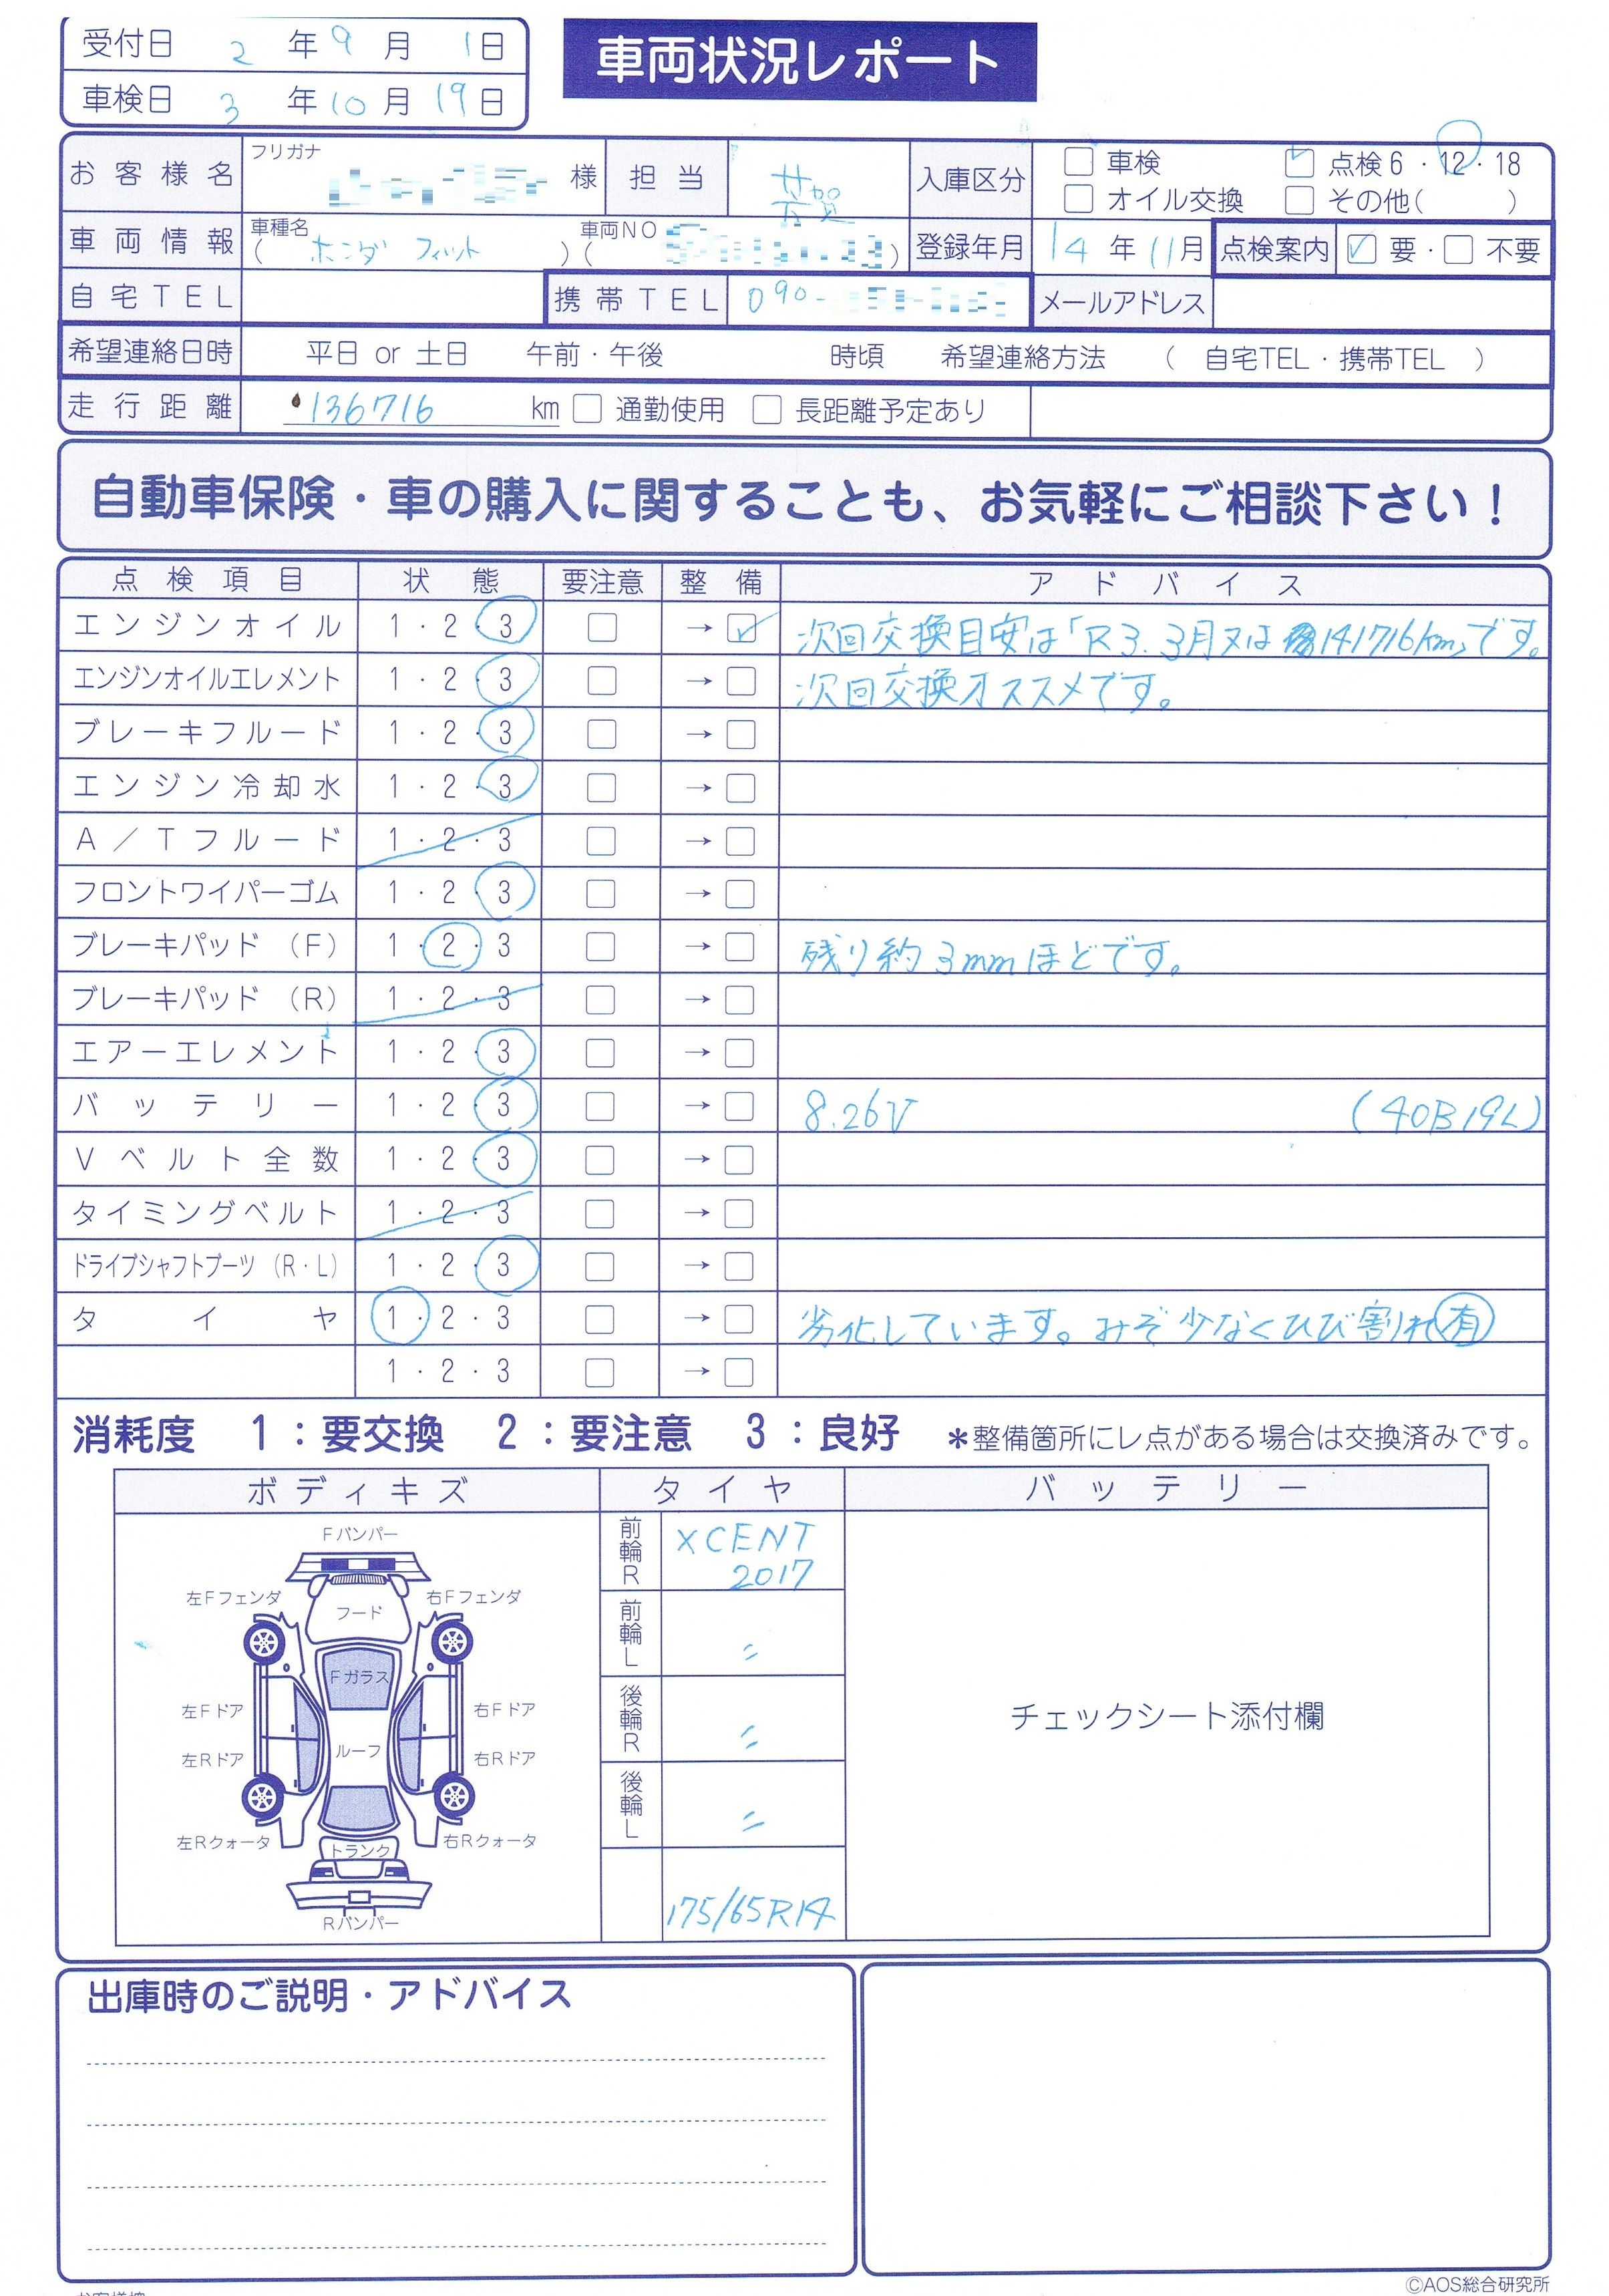 受付日 2 年 9 月 1 日
車検日 3 年 10 月 19 日
車両状況レポート
お客様名 フリガナ 様 担当 入庫区分 車検 点検6・12・18
オイル交換 その他( )
車両情報 車種名 ( ホンダ フィット ) 車両NO ( ) 登録年月 14 年 11 月 点検案内 要・不要
自宅TEL 携帯TEL 090- メールアドレス
希望連絡日時 平日 or 土日 午前・午後 時頃 希望連絡方法 ( 自宅TEL・携帯TEL )
走行距離 136716 km 通勤使用 長距離予定あり
自動車保険・車の購入に関することも、お気軽にご相談下さい!
点検項目 状態 要注意 整備 アドバイス
エンジンオイル 1・2・3 → 次回交換目安は「R3.3月又は141716km」です。
エンジンオイルエレメント 1・2・3 → 次回交換オススメです。
ブレーキフルード 1・2・3 →
エンジン冷却水 1・2・3 →
A/Tフルード 1・2・3 →
フロントワイパーゴム 1・2・3 →
ブレーキパッド (F) 1・2・3 → 残り約3mmほどです。
ブレーキパッド (R) 1・2・3 →
エアーエレメント 1・2・3 →
バッテリー 1・2・3 → 8.26V (40B19L)
Vベルト全数 1・2・3 →
タイミングベルト 1・2・3 →
ドライブシャフトブーツ (R・L) 1・2・3 →
タイヤ 1・2・3 → 劣化しています。みぞ少なくひび割れ有
1・2・3 →
消耗度 1:要交換 2:要注意 3:良好 *整備箇所にレ点がある場合は交換済みです。
ボディキズ タイヤ バッテリー
Fバンパー
左Fフェンダ 右Fフェンダ
フード
Fガラス
左Fドア 右Fドア
ルーフ
左Rドア 右Rドア
左Rクォータ 右Rクォータ
トランク
Rバンパー
前輪R XCENT
2017
前輪L 〃
後輪R 〃
後輪L 〃
175/65R14
チェックシート添付欄
出庫時のご説明・アドバイス
©AOS総合研究所